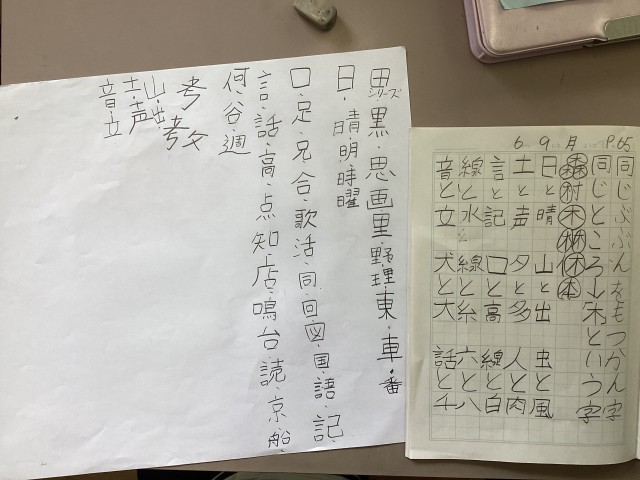 6 9 月 P.65
同じぶぶんをもつかん字
同じところ→木という字
森 村 木 林 休 本
日と晴 山と出 虫と風
土と声 夕と多 人と肉
言と記 口と高 線と白
線と水 線と糸 六と八
音と立 犬と大 話と千
田シリーズ 黒・思・画・里・野・理・東・車・番
日・晴・明・時・曜
口・足・兄・合・歌・活・同・回・図・国・語・記
言・話・高・点・知・店・鳴・台・読・京・船
何・谷・週
考 考攵
山・出
士・声
音・立